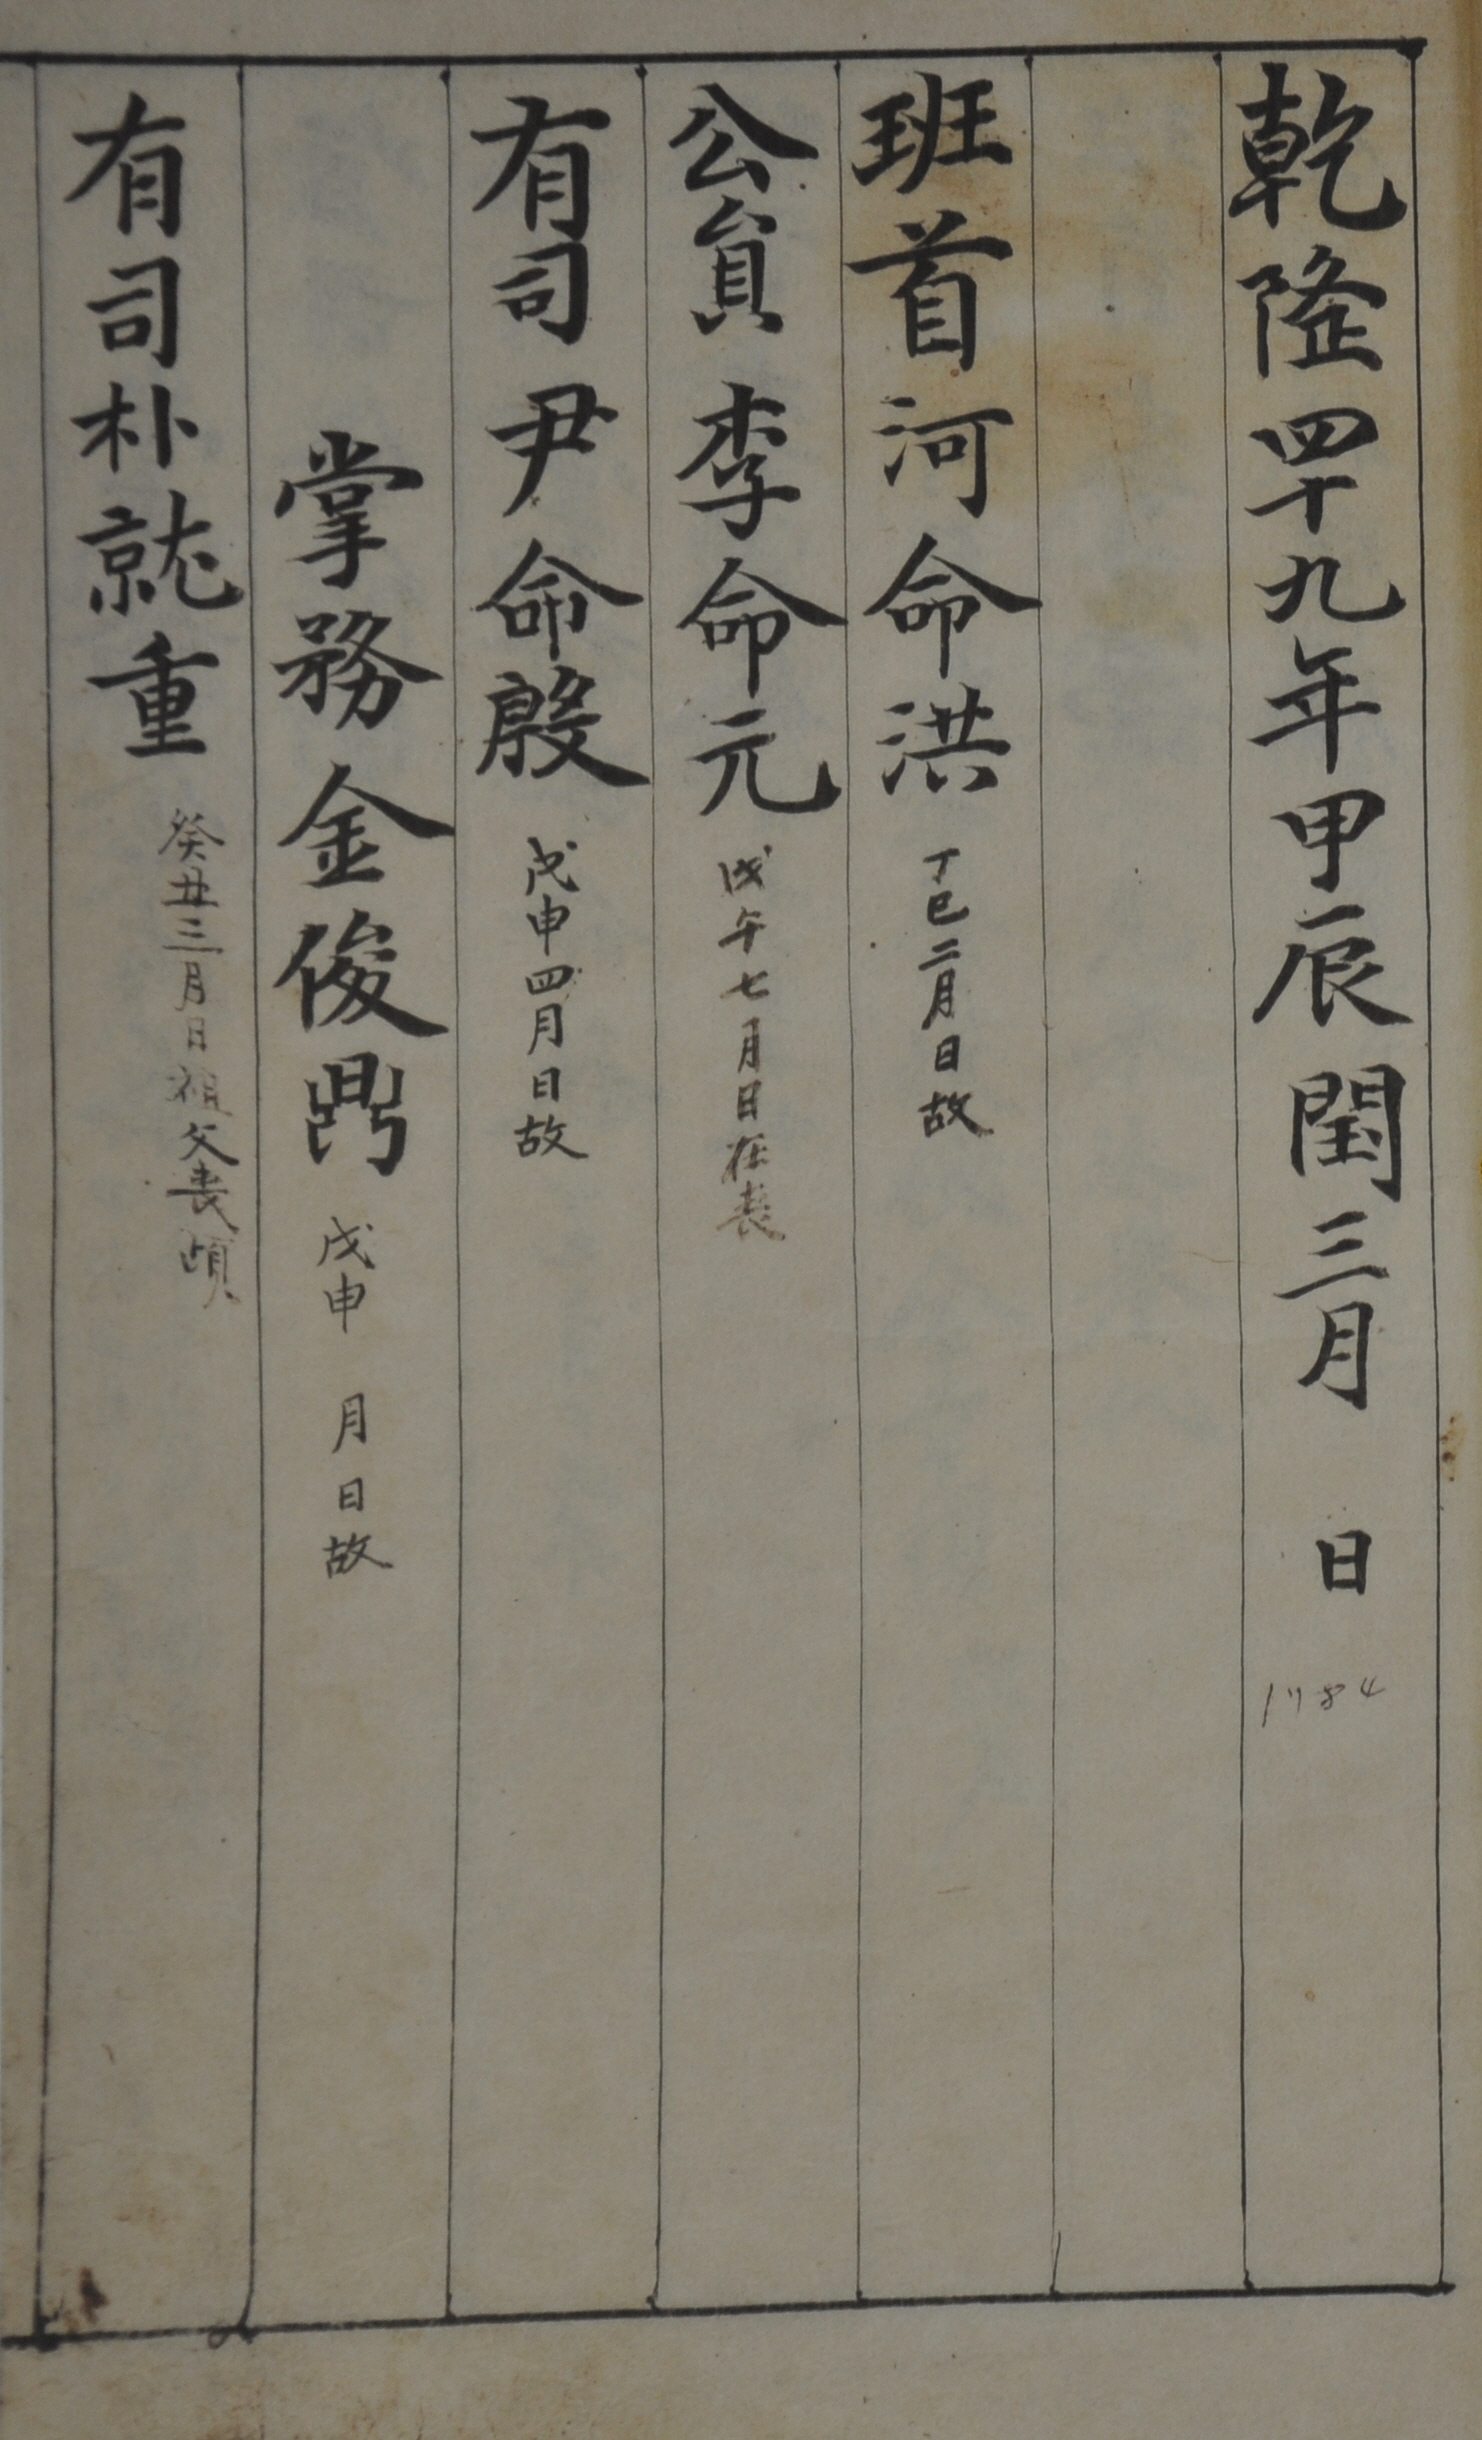 乾隆四十九年甲辰閏三月 日
1784
班首河命洪 丁巳二月日故
公員李命元 戊午七月日在喪
有司尹命殷 戊申四月日故
掌務金俊鼎 戊申 月日故
有司朴就重 癸丑三月日祖父喪頉